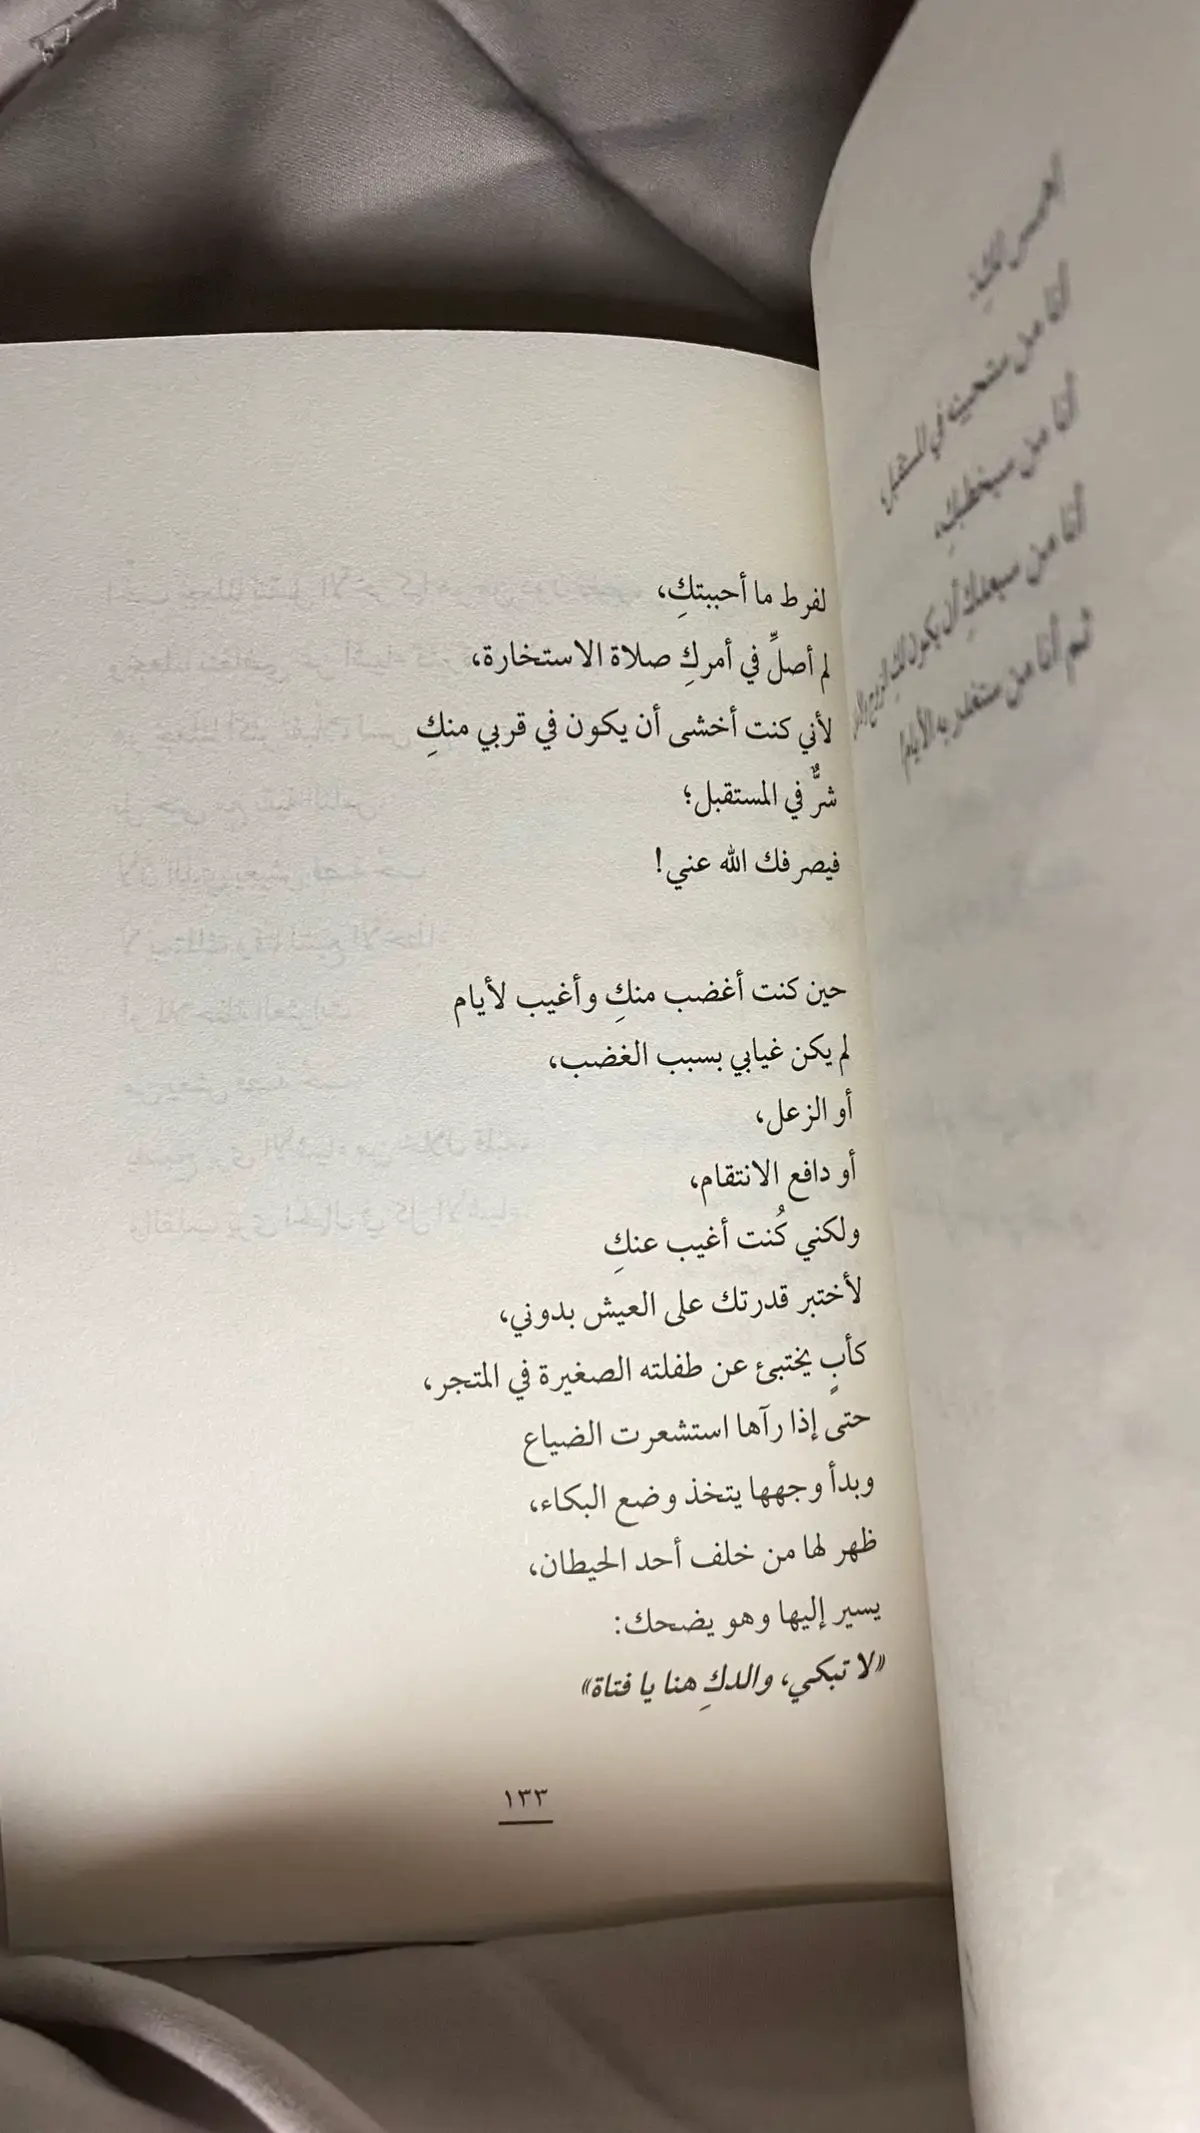 أنا من ستحبينه في المستقبل،
أنا من سيخطبكِ،
ثم أنا من ستغدر به الأيام!
لفرط ما أحببتكِ،
لم أصلِّ في أمركِ صلاة الاستخارة،
لأني كنت أخشى أن يكون في قربي منكِ
شرٌّ في المستقبل؛
فيصرفك الله عني!
حين كنت أغضب منكِ وأغيب لأيام
لم يكن غيابي بسبب الغضب،
أو الزعل،
أو دافع الانتقام،
ولكني كُنت أغيب عنكِ
لأختبر قدرتك على العيش بدوني،
كأبٍ يختبئ عن طفلته الصغيرة في المتجر،
حتى إذا رآها استشعرت الضياع
وبدأ وجهها يتخذ وضع البكاء،
ظهر لها من خلف أحد الحيطان،
يسير إليها وهو يضحك:
«لا تبكي، والدكِ هنا يا فتاة»
١٣٣